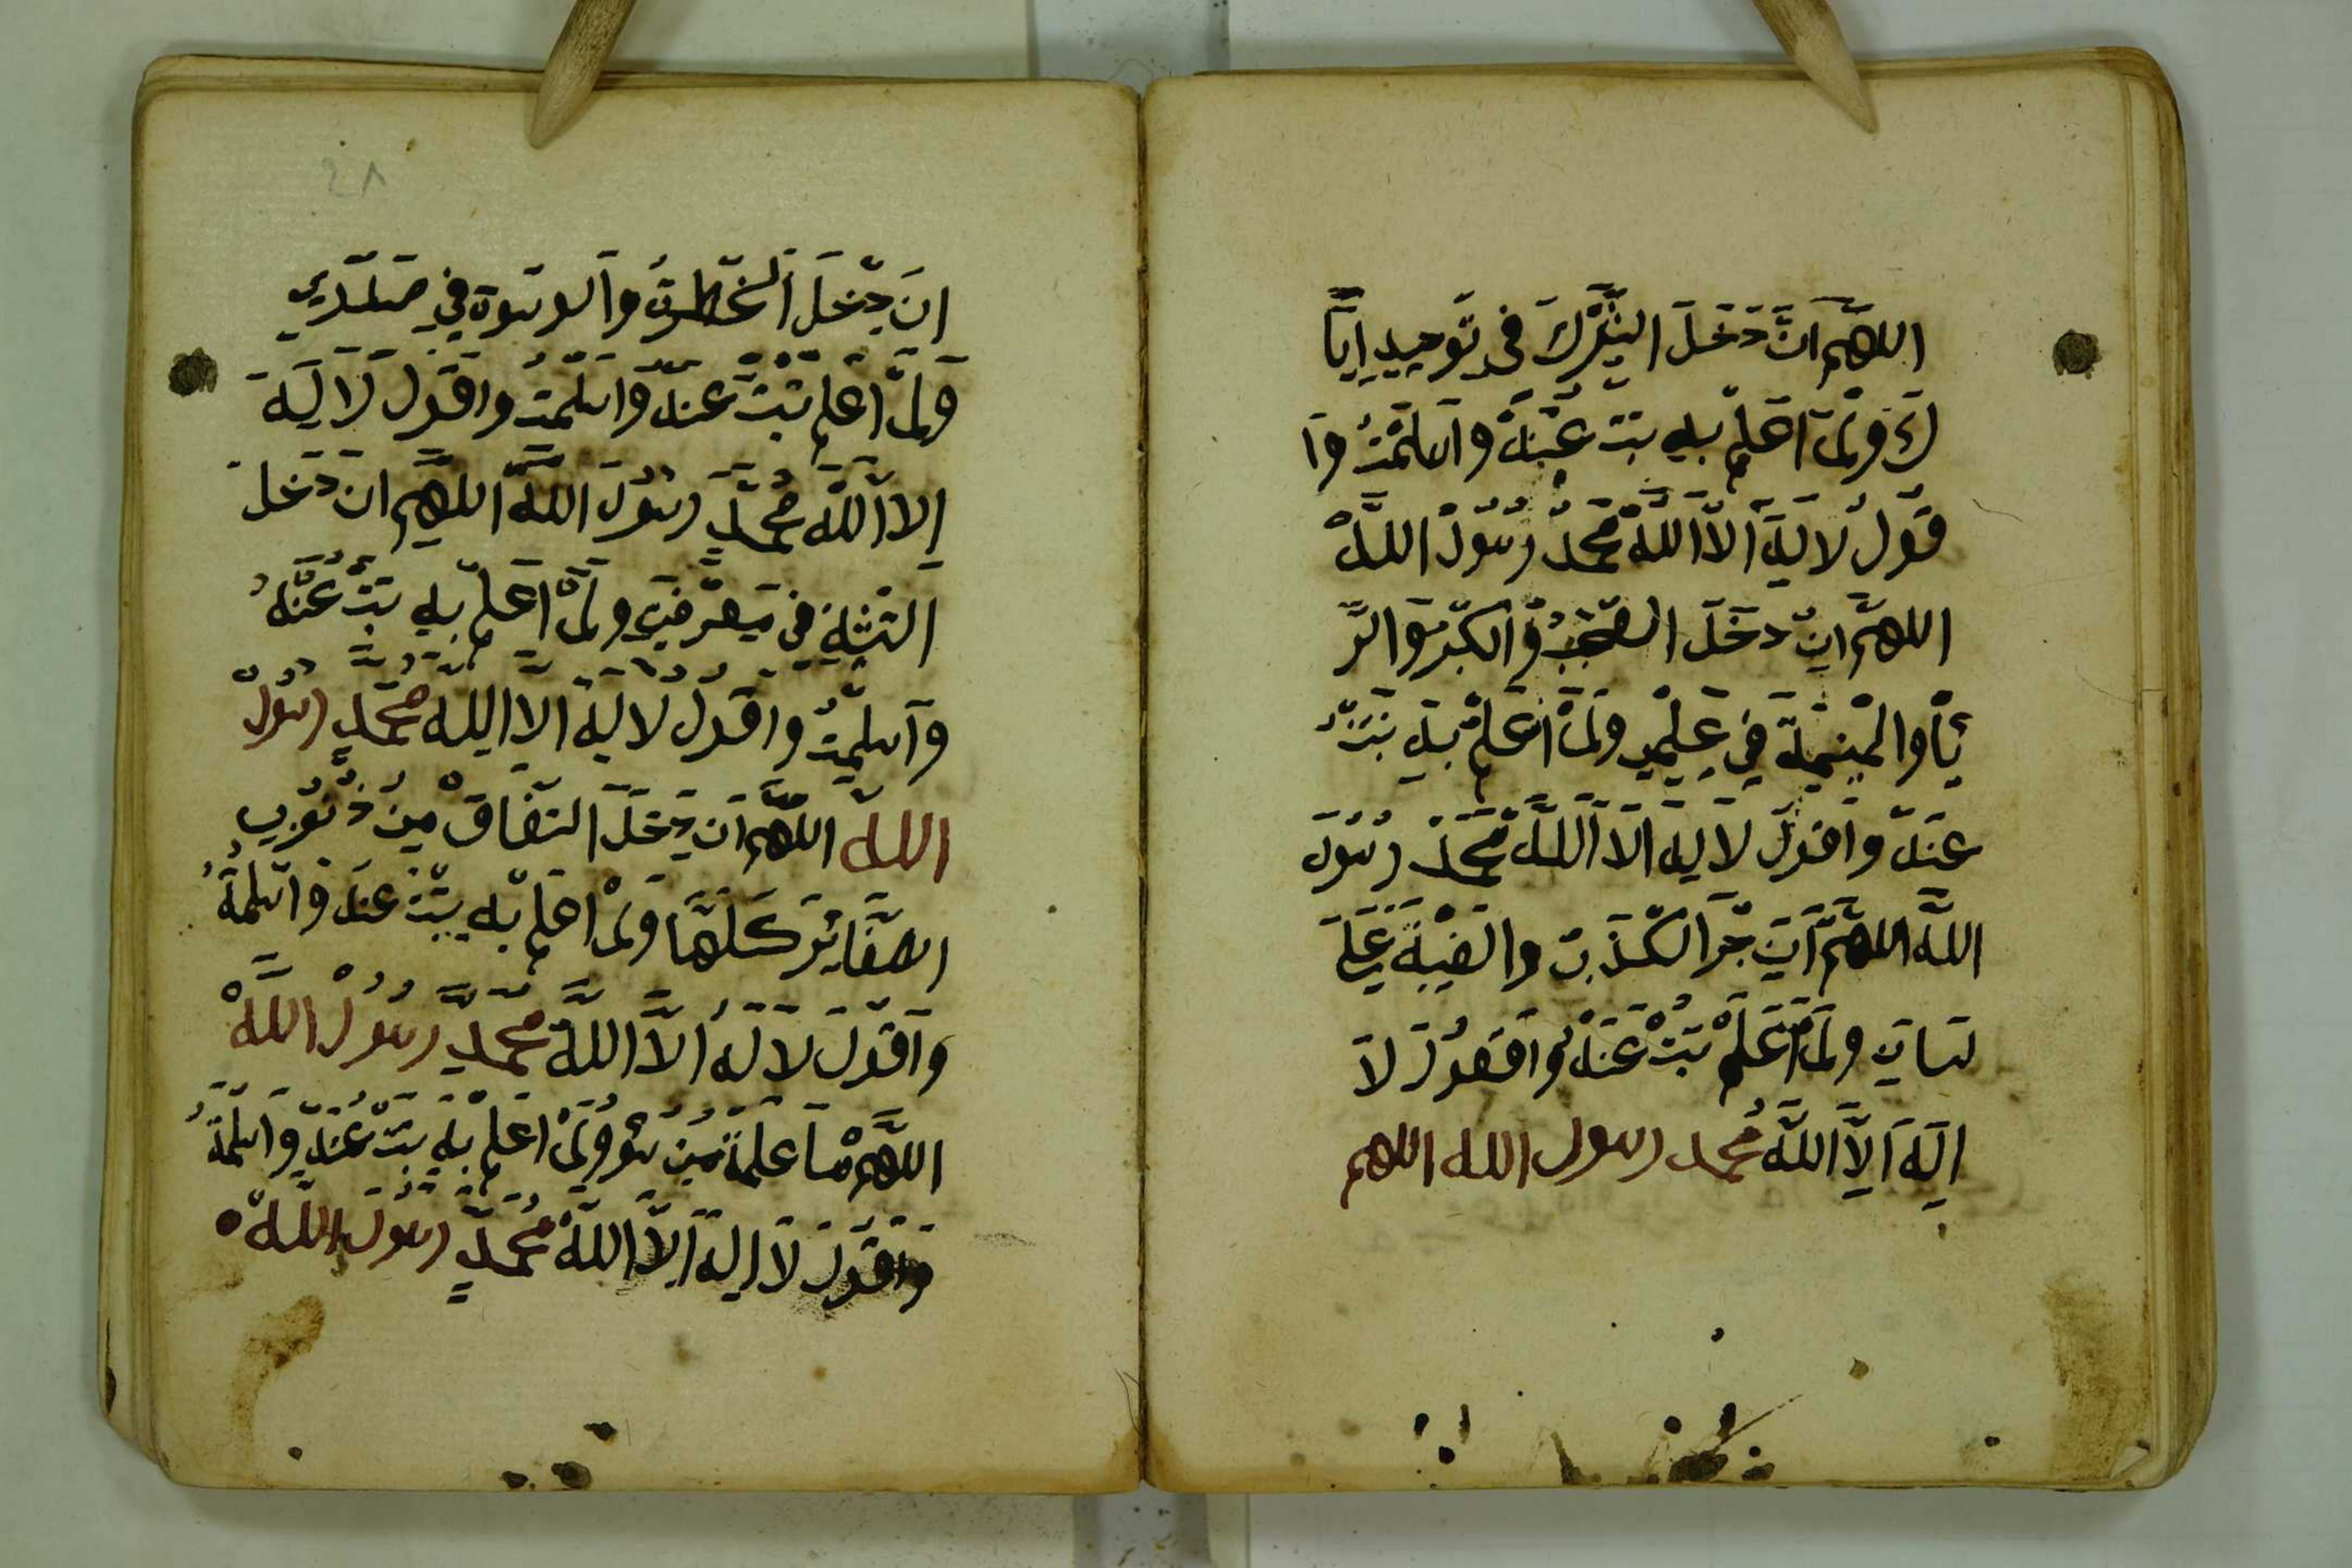 اللهم ان دخل الشرك في توحيد ايا
ك ولم اعلم به تبت عنه واسلمت وا
قول لا يه الا الله محمد رسول الله
اللهم ان دخل العجب والكبر والر
يا والمنيمة في علمي ولم اعلم به تبت
عنه واقول لا يه الا الله محمد رسول
الله اللهم ان جر الكذب والغيبة على
لسان ولم اعلم تبت عنه واقعول لا
اله الا الله محمد رسول الله اللهم
٢٨
ان دخل الخطرة والوسوة في صدري
ولم اعلم تبت عنه واسلمت واقول لا ليه
الا الله محمد رسول الله اللهم ان دخل
التشبه في معرفتي ولم اعلم به تبت عنه
واسلمت واقول لا ليه الا الله محمد رسول
الله اللهم ان دخل النفاق من ذنوب
الصغاير كلها ولم اعلم به تبت عنه واسلمة
واقول لا له الا الله محمد رسول الله
اللهم ما علمة من سو ولم اعلم به تبت عنه واسلمة
واقول لا اله الا الله محمد رسول الله